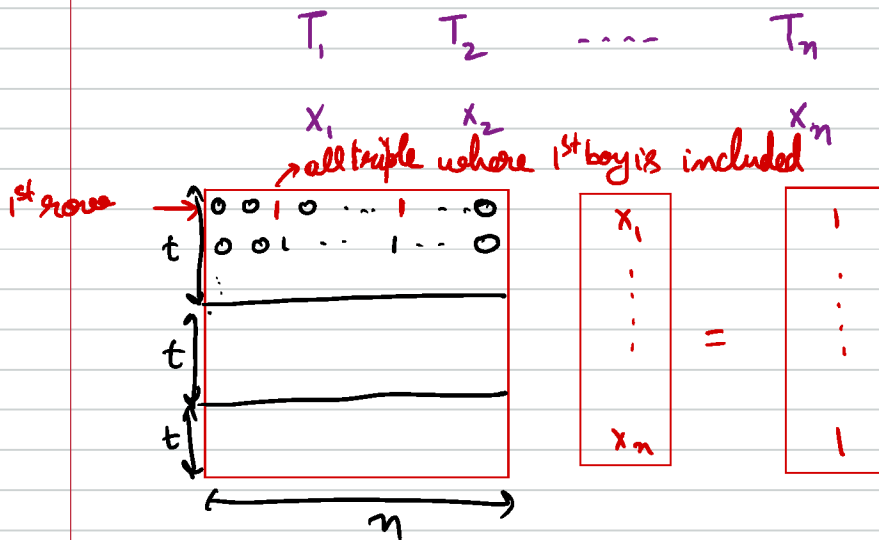 T₁ T₂ ---- Tₙ
x₁ x₂ xₙ
→ all triple where 1st boy is included
1st row → 0 0 1 0 ... 1 -..0
t 0 0 1 .. 1 -.. 0
t
t
n
x₁
xₙ
=
1
1